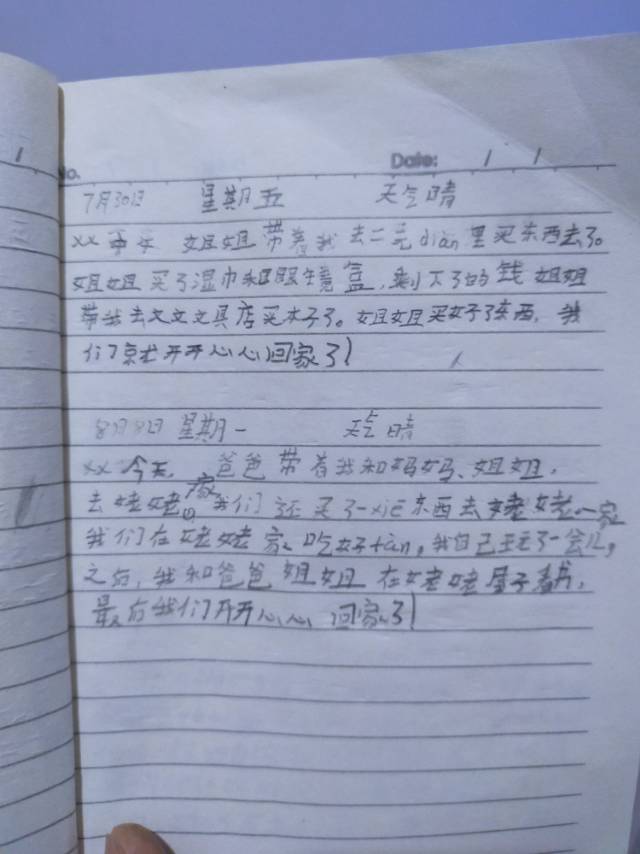 No. Date: / /
7月30日 星期五 天气晴
xx 姐姐带着我去二元diàn里买东西去了。
姐姐买了湿巾和眼镜盒,剩下了的钱姐姐
带我去文文文具店买本子了。姐姐买好了东西,我
们京尤开开心心回家了!
8月8日 星期一 天气晴
xx 今天, 爸爸带着我和妈妈、姐姐,
去姥姥家,我们还买了一xiē东西去姥姥家
我们在姥姥家吃好fàn,我自己玩了一会儿,
之后,我和爸爸姐姐在姥姥屋子看书,
最后我们开开心心回家了!